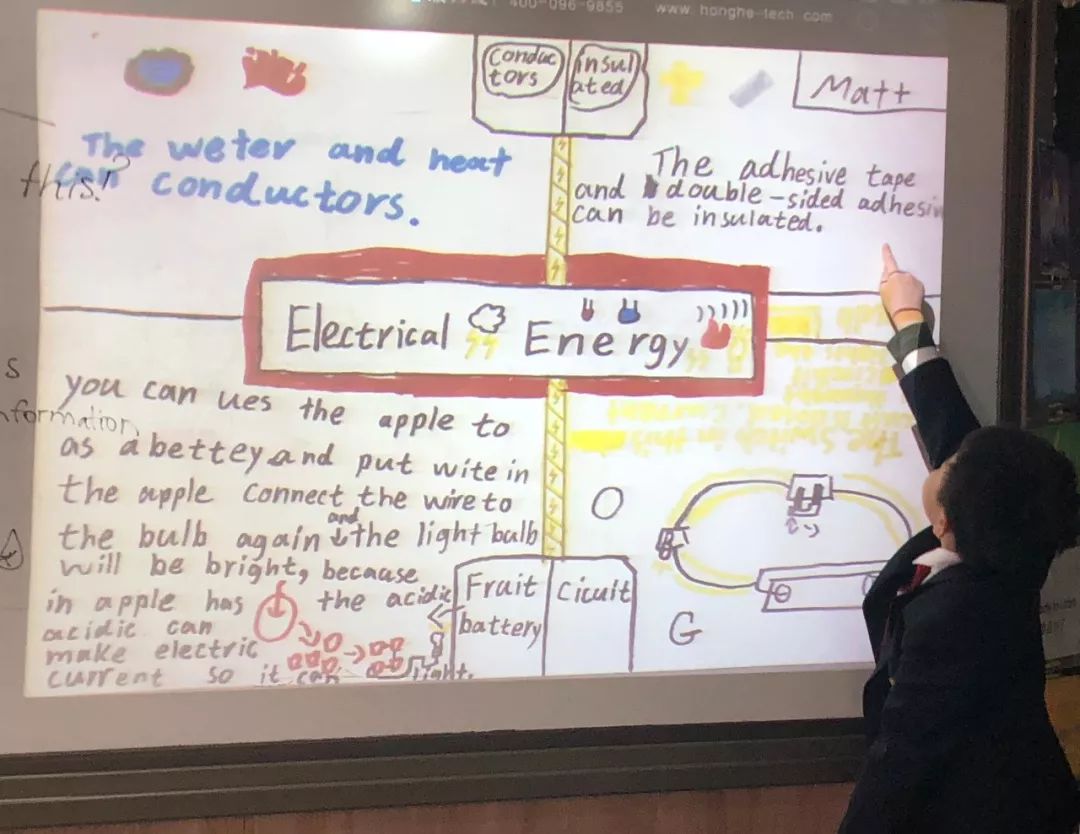 400-096-9855 www.honghe-tech.com
Conduc
tors
insul
ated
Matt
The weter and heat
can conductors.
this!
The adhesive tape
and double-sided adhesiv
can be insulated.
Electrical Energy
s
nformation
you can ues the apple to
as a bettey and put wite in
the apple connect the wire to
the bulb again and the light bulb
will be bright, because
in apple has the acidic
acidic can
make electric
current so it can light.
Fruit
battery
Cicuit
The Switch in this
G